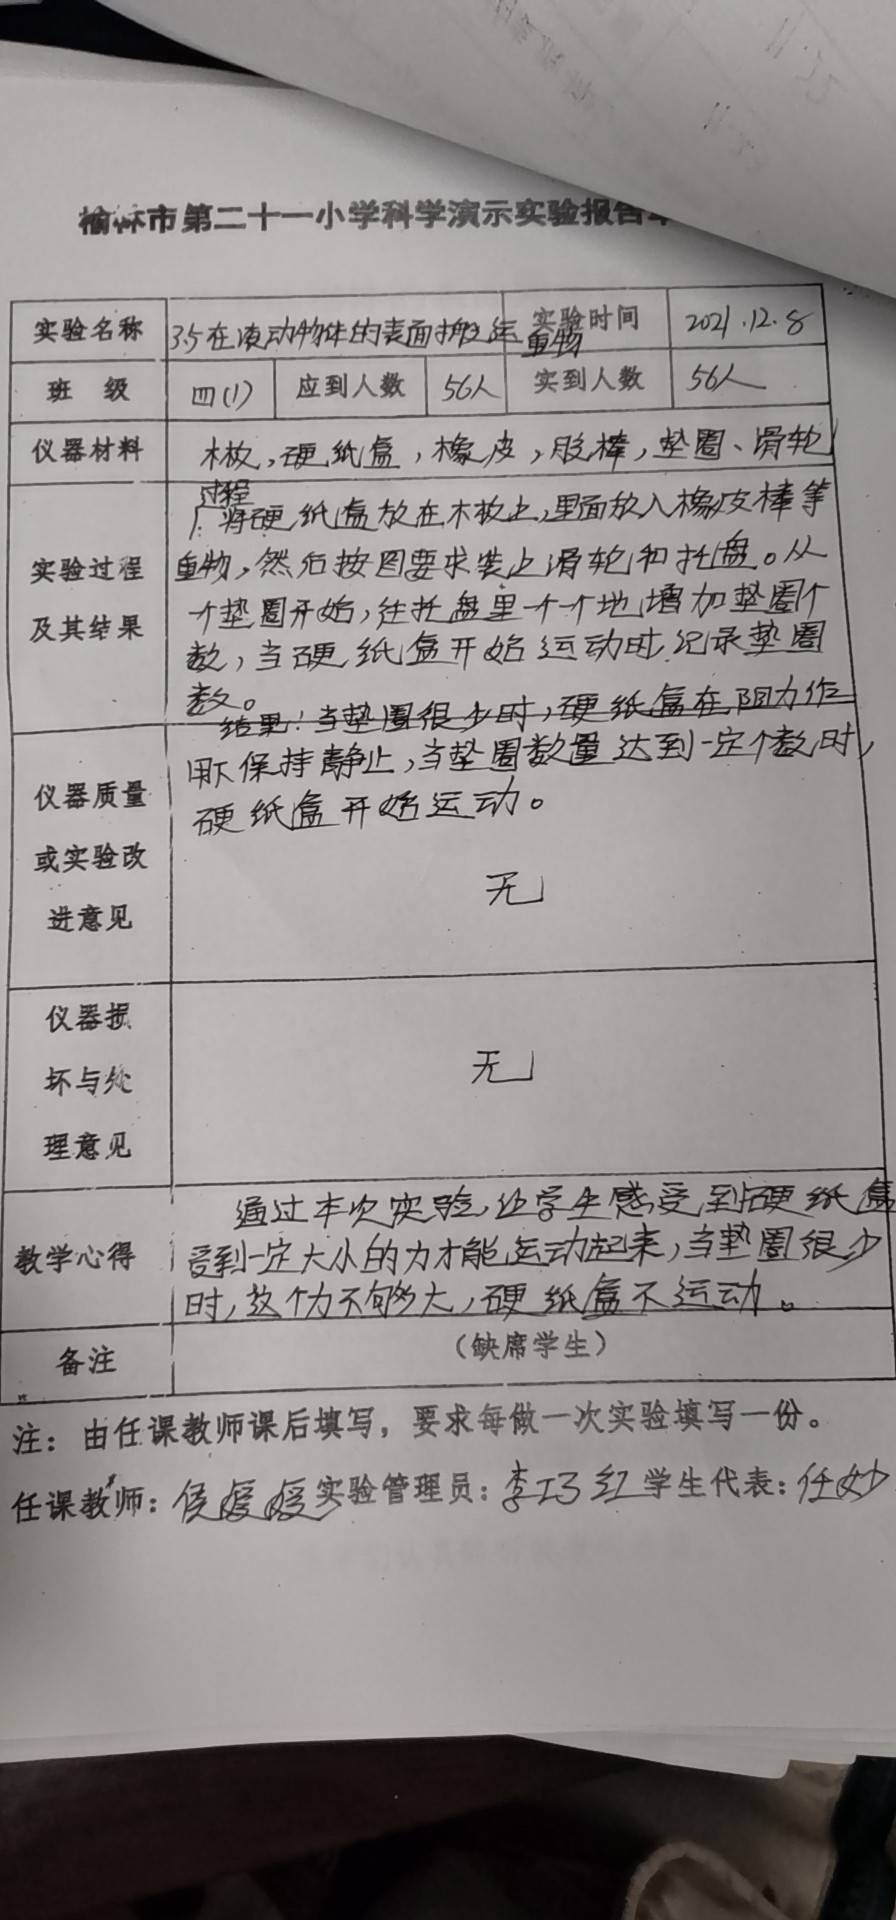 榆林市第二十一小学科学演示实验报告单
实验名称 3.5在滚动物体的表面搬运重物 实验时间 2021.12.8
班 级 四(1) 应到人数 56人 实到人数 56人
仪器材料 木板,硬纸盒,橡皮,胶棒,垫圈、滑轮
过程
1.将硬纸盒放在木板上,里面放入橡皮棒等
实验过程 重物,然后按图要求装上滑轮和托盘。从
及其结果 一个垫圈开始,往托盘里一个一个地增加垫圈个
数,当硬纸盒开始运动时,记录垫圈
数。
结果:当垫圈很少时,硬纸盒在阻力作
用下保持静止,当垫圈数量达到一定个数时,
仪器质量 硬纸盒开始运动。
或实验改
进意见 无
仪器损
坏与处 无
理意见
通过本次实验,让学生感受到硬纸盒
教学心得 受到一定大小的力才能运动起来,当垫圈很少
时,这个力不够大,硬纸盒不运动。
备注 (缺席学生)
注:由任课教师课后填写,要求每做一次实验填写一份。
任课教师:侯媛媛 实验管理员:李巧红 学生代表:任妙